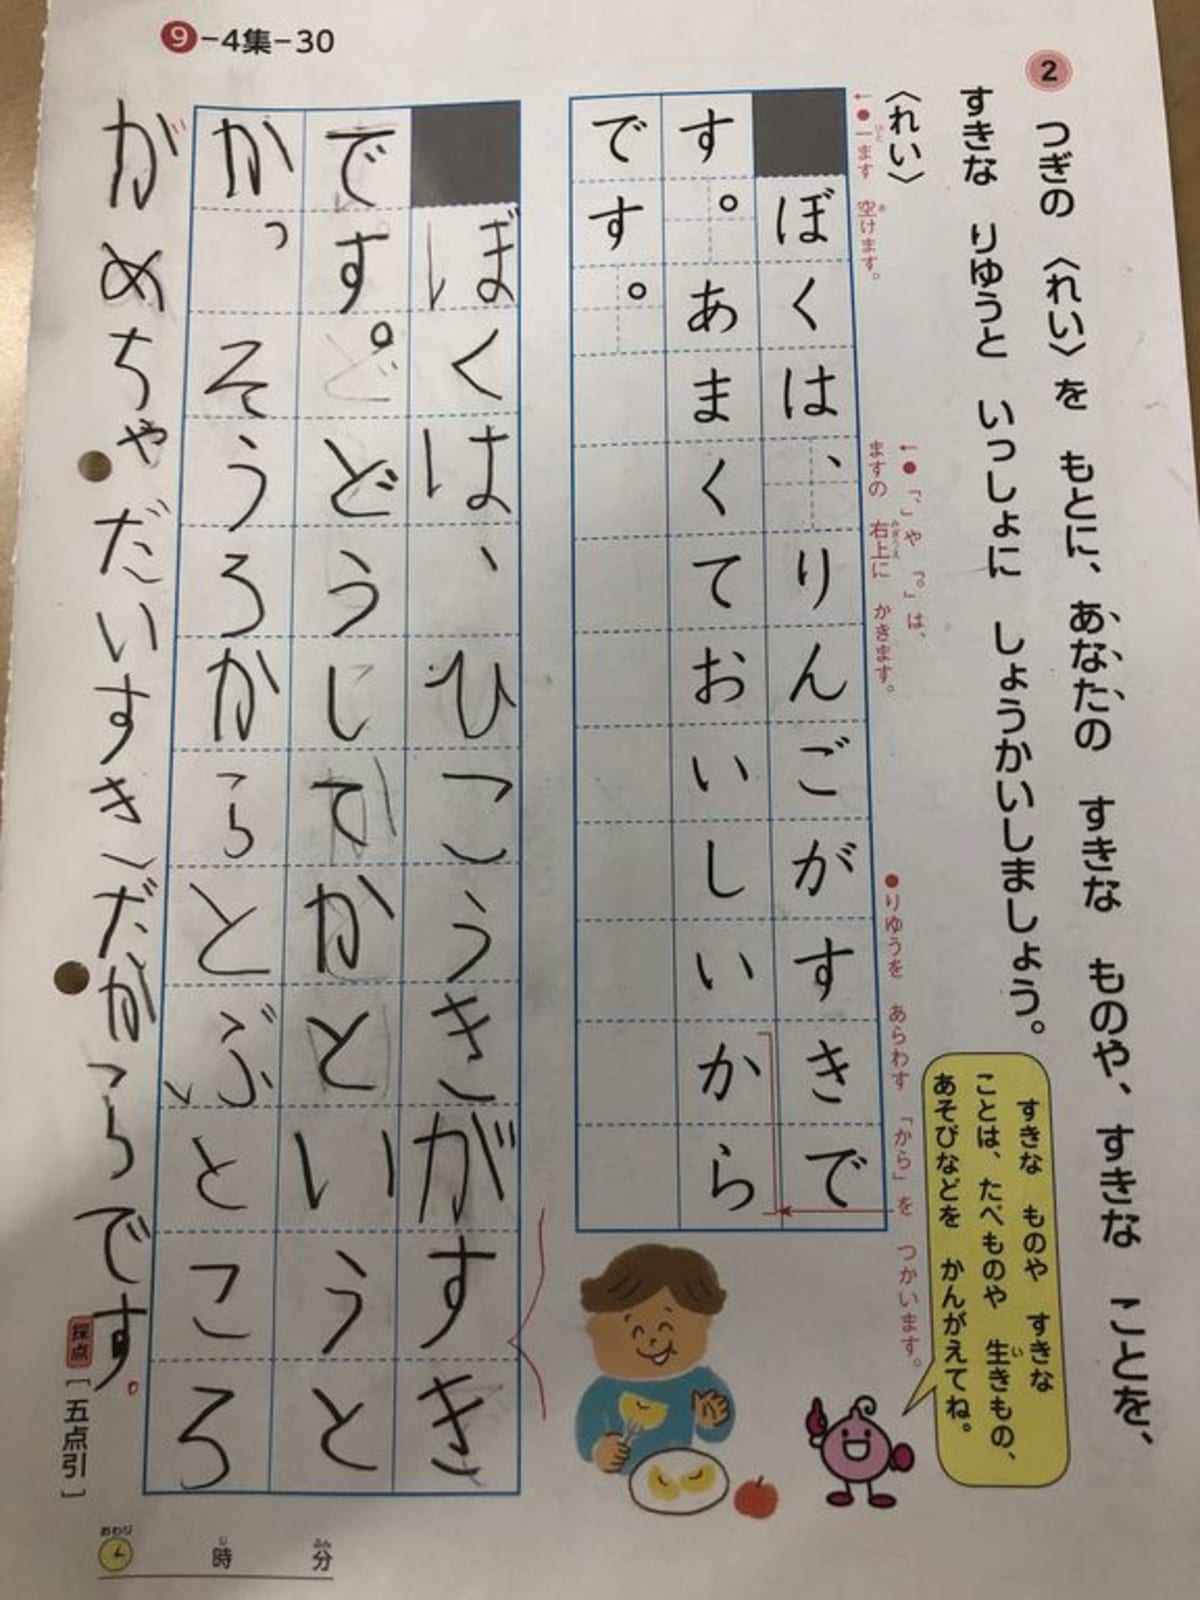 ❾-4集-30
2
つぎの 〈れい〉を もとに、あなたの すきな ものや、すきな ことを、
すきな りゆうと いっしょに しょうかいしましょう。
すきな ものや すきな
ことは、たべものや 生きもの、
い
あそびなどを かんがえてね。
〈れい〉
←●一ます 空けます。
ひと あ
←●「、」や 「。」は、
ますの 右上に かきます。
みぎうえ
●りゆうを あらわす 「から」を つかいます。
ぼくは、りんごがすきで
す。あまくておいしいから
です。
ぼくは、ひこうきがすき
です。どうしてかというと
かっそうろからとぶところ
がめちゃだいすきだからです。
採点
[五点引]
おわり
時 分
じ ふん